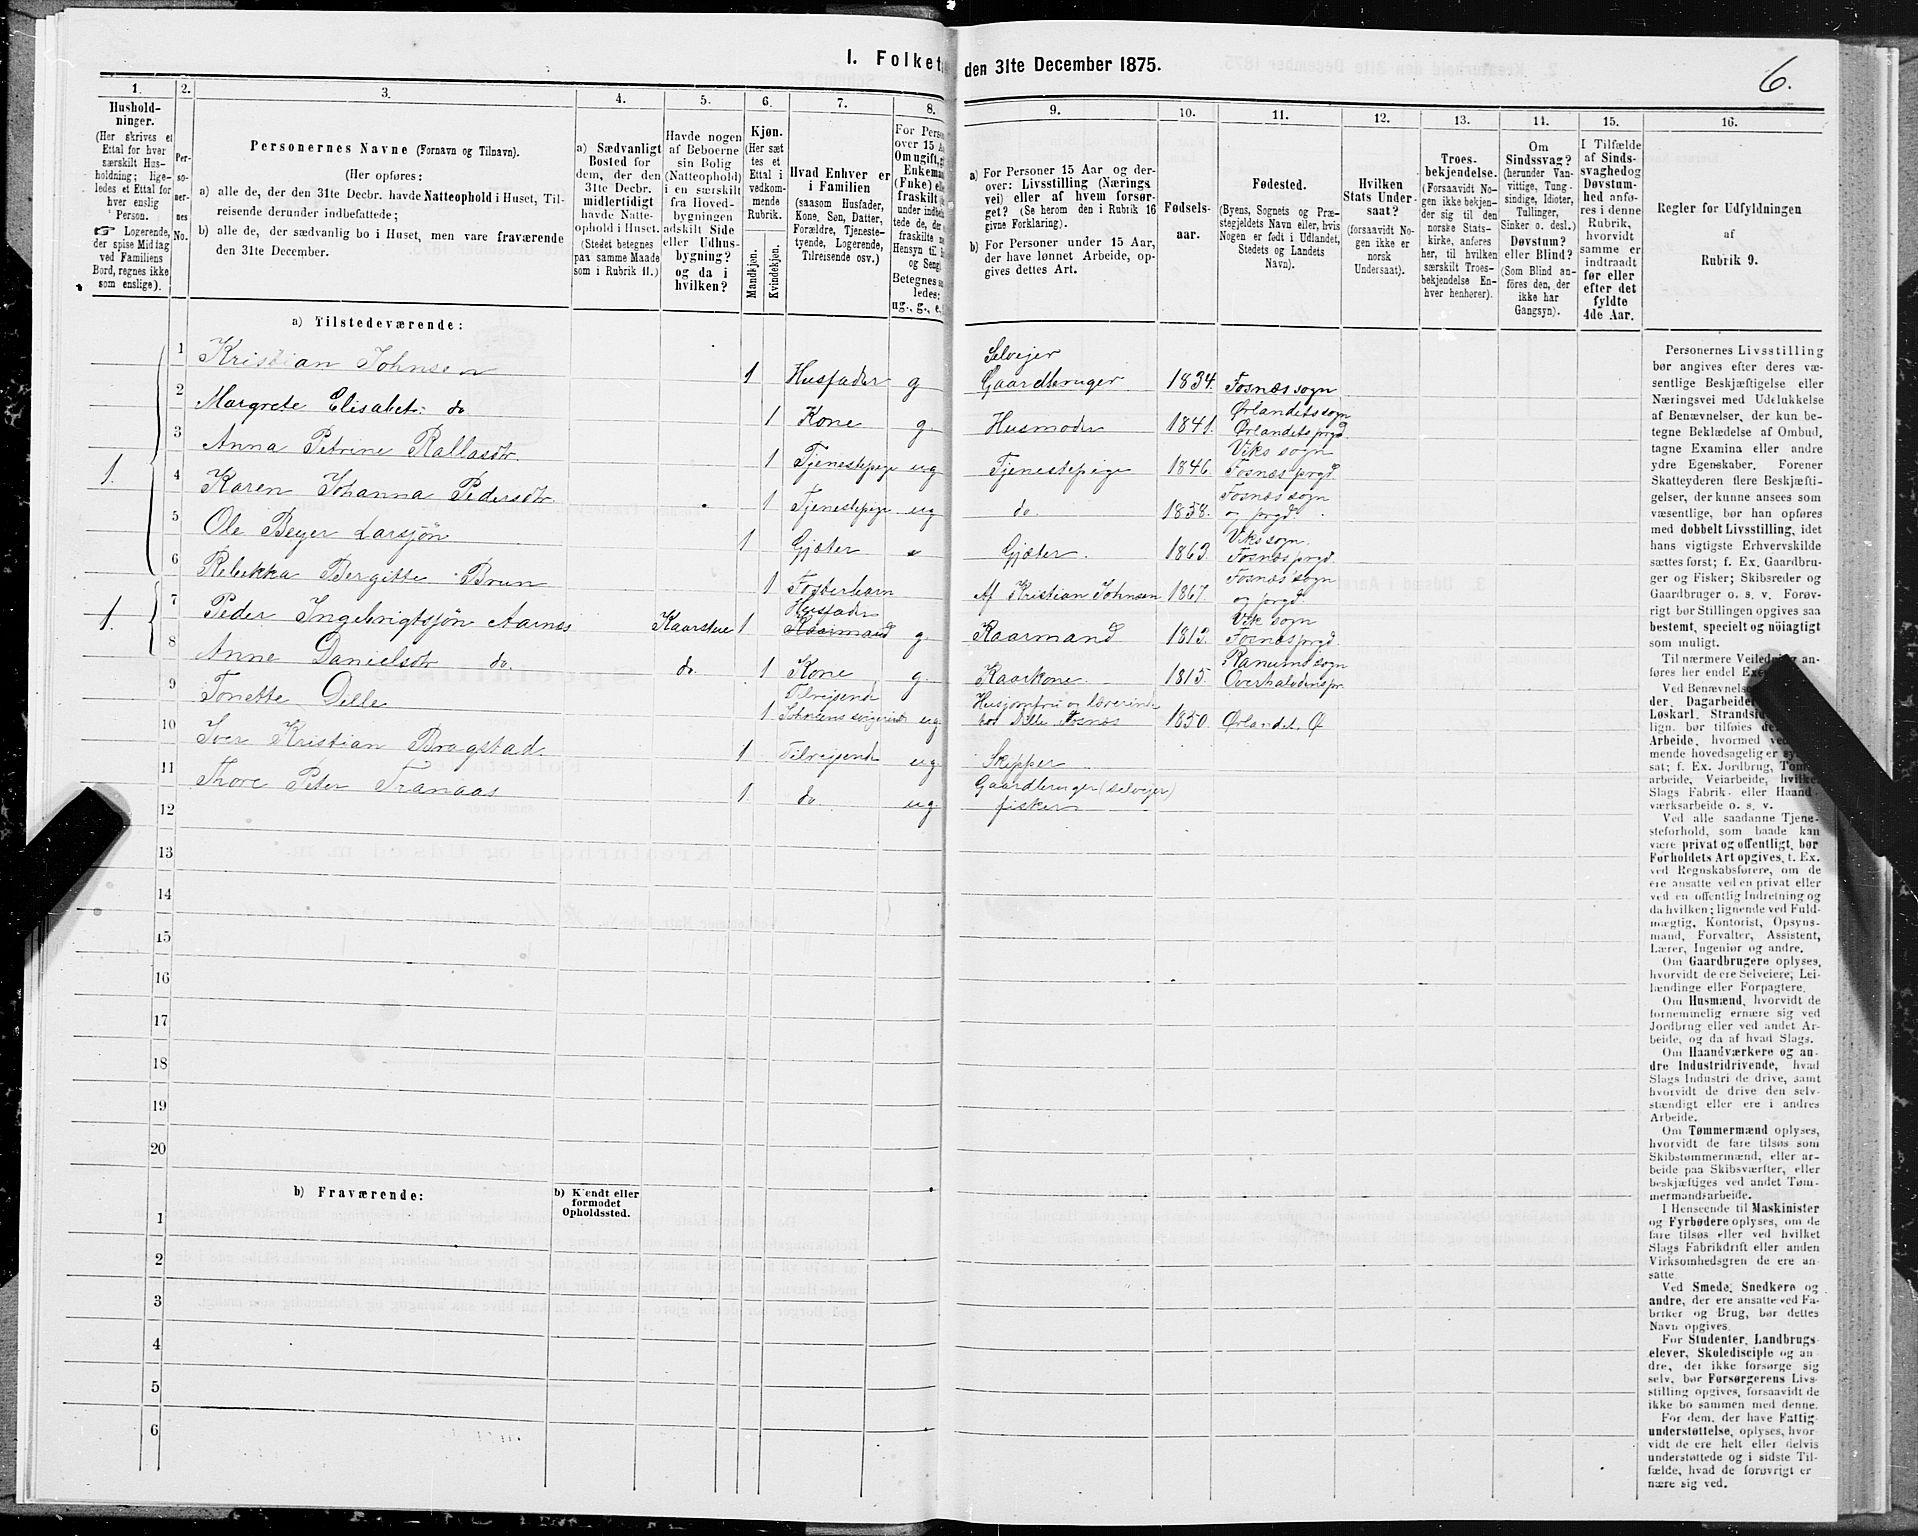 I. Folket
den 31te December 1875.
6.
1.
2.
3.
4.
5.
6.
7.
8.
9.
10.
11.
12.
13.
14.
15.
16.
Hushold-
ninger.
(Her skrives et
Ettal for hver
særskilt Hus-
holdning; lige-
ledes et Ettal for
hver enslig
Person.
☞ Logerende,
der spise Middag
ved Familiens
Bord, regnes ikke
som enslige).
Per-
so-
ner-
nes
No.
Personernes Navne (Fornavn og Tilnavn).
(Her opføres:
a) alle de, der den 31te Decbr. havde Natteophold i Huset, Til-
reisende derunder indbefattede;
b) alle de, der sædvanlig bo i Huset, men vare fraværende
den 31te December.
a) Sædvanligt
Bosted for
dem, der den
31te Decbr.
midlertidigt
havde Natte-
ophold i Huset.
(Stedet betegnes
paa samme Maade
som i Rubrik 11.)
Havde nogen
af Beboerne
sin Bolig
(Natteophold)
i en særskilt
fra Hoved-
bygningen
adskilt Side
eller Udhus-
bygning?
og da i
hvilken?
Kjøn.
(Her sæt
tes et
Ettal i
vedkom-
mende
Rubrik.
Mandkjøn.
Kvindekjøn.
Hvad Enhver er
i Familien
(saasom Husfader,
Kone, Søn, Datter,
Forældre, Tjeneste-
tyende, Logerende,
Tilreisende osv.)
For Perso
over 15 A
Om ugift, g
Enkeman
(Fuke) elle
fraskilt
under indbe
tede de, der
fraskilte
Hensyn til B
og Seng).
Betegnes sa
ledes:
ug., g., e,
a) For Personer 15 Aar og der-
over: Livsstilling (Nærings
vei) eller af hvem forsør-
get? (Se herom den i Rubrik 16
givne Forklaring).
b) For Personer under 15 Aar,
der have lønnet Arbeide, op-
gives dettes Art.
Fødsels-
aar.
Fødested.
(Byens, Sognets og Præ-
stegjeldets Navn eller, hvis
Nogen er født i Udlandet,
Stedets og Landets
Navn).
Hvilken
Stats Under-
saat?
(forsaavidt No-
gen ikke er
norsk
Undersaat).
Troes-
bekjendelse.
(Forsaavidt No-
gen ikke bekjen-
der sig til den
norske Stats-
kirke, anføres
her, til hvilken
særskilt Troes-
bekjendelse En-
hver henhører).
Om
Sindssvag?
(herunder Van-
vittige, Tung-
sindige, Idioter,
Tullinger,
Sinker o. desl.)
Døvstum?
eller Blind?
(Som Blind an-
føres den, der
ikke har
Gangsyn).
I Tilfælde
af Sinds-
svaghed og
Døvstum-
hed anfø-
res i denne
Rubrik,
hvorvidt
samme er
indtraadt
før eller
efter det
fyldte
4de Aar.
Regler for Udfyldningen
af
Rubrik 9.
a) Tilstedeværende:
1 Kristian Johnsen 1 Husfader g Selvejer Gaardbruger 1834. Fosnæs sogn
2 Margrete Elisabet: do 1 Kone g Husmoder 1841. Ørlandets sogn Ørlandets prgd.
3 Anna Petrine Rallasdtr. 1 Tjenestepige ug Tjenestepige 1846. Viks sogn Fosnæs prgd.
1. 4 Karen Johanna Pedersdtr 1 Tjenestepige ug do. 1858. Fosnæs sogn og prgd.
5 Ole Beyer Larsjøn 1 Gjæter Gjæter. 1863. Viks sogn. Fosnæs prgd.
6 Rebekka Bergitte Brun 1 Fosterbarn Af Kristian Johnsen 1867. Fosnæs sogn og prgd.
1. 7 Peder Ingebrigtsjøn Aarnes Kaarstue 1 Husfader Kaarmand g. Kaarmand 1813. Vik sogn Fosnæs prgd.
8 Anne Danielsdtr do do. 1 Kone g. Kaarkone 1815. Ranums sogn Overhaldens pr.
9 Tonette Dille 1 Tilrejsend ug Husjomfru og lærerinde hos Dille Fosnæs 1850. Ørlandet. Ø
10 Iver Kristian Bragstad 1 Tilrejsend ug Skipper
11 Thore Peter Tranaas 1 do ug Gaardbruger (selvejer) fisker
12
13
14
15
16
17
18
19
20
b) Fraværende:
b) Kjendt eller
formodet
Opholdssted.
1
2
3
4
5
6
Personernes Livsstilling
bør angives efter deres væ-
sentlige Beskjæftigelse eller
Næringsvei med Udelukkelse
af Benævnelser, der kun be-
tegne Beklædelse af Ombud,
tagne Examina eller andre
ydre Egenskaber. Forener
Skatteyderen flere Beskjæfti-
gelser, der kunne ansees som
væsentlige, bør han opføres
med dobbelt Livsstilling, idet
hans vigtigste Erhvervskilde
sættes først; f. Ex. Gaardbru-
ger og Fisker; Skibsreder og
Gaardbruger o. s. v. Forøv-
rigt bør Stillingen opgives saa
bestemt, specielt og nöiagtigt
som muligt.
Til nærmere Veiledning an-
føres her endel Exe
Ved Benævnelse
der, Dagarbeide
Løskarl, Strandsid
lign. bør tilføies de
Arbeide, hvormed ved
mende hovedsagelig er sys
sat; f. Ex. Jordbrug, Tom
arbeide, Veiarbeide, hvilke
Slags Fabrik- eller Haand
værksarbeide o. s. v.
Ved alle saadanne Tjene-
steforhold, som baade kan
være privat og offentligt, bør
Forholdets Art opgives, t. Ex.
ved Regnskabsførere, om de
ere ansatte ved en privat eller
ved en offentlig Indretning og
da hvilken; lignende ved Fuld-
mægtig, Kontorist, Opsyns-
mand, Forvalter, Assistent,
Lærer, Ingeniør og andre.
Om Gaardbrugere oplyses,
hvorvidt de ere Selveiere, Lei-
lændinge eller Forpagtere.
Om Husmænd, hvorvidt de
fornemmelig ernære sig ved
Jordbrug eller ved andet Ar-
beide, og da af hvad Slags.
Om Haandværkere og an-
dre Industridrivende, hvad
Slags Industri de drive, samt
hvorvidt de drive den selv-
stændigt eller ere i andres
Arbeide.
Om Tømmermænd oplyses,
hvorvidt de fare tilsøs som
Skibstømmermænd, eller ar-
beide paa Skibsværfter, eller
beskjæftiges ved andet Tøm-
mermandsarbeide.
I Henseende til Maskinister
og Fyrbødere oplyses, om de
fare tilsøs eller ved hvilket
Slags Fabrikdrift eller anden
Virksomhedsgren de ere an-
satte.
Ved Smede, Snedkere og
andre, der ere ansatte ved Fa-
briker og Brug, bør dettes
Navn opgives.
For Studenter, Landbrugs-
elever, Skoledisciple og an-
dre, der ikke forsørge sig
selv, bør Forsørgerens Livs-
stilling opgives, forsaavidt de
ikke bo sammen med denne.
For dem, der have Fattig-
understøttelse, oplyses, hvor-
vidt de ere helt eller delvis
understøttede og i sidste Til-
fælde, hvad de forøvrigt er
nære sig ved.